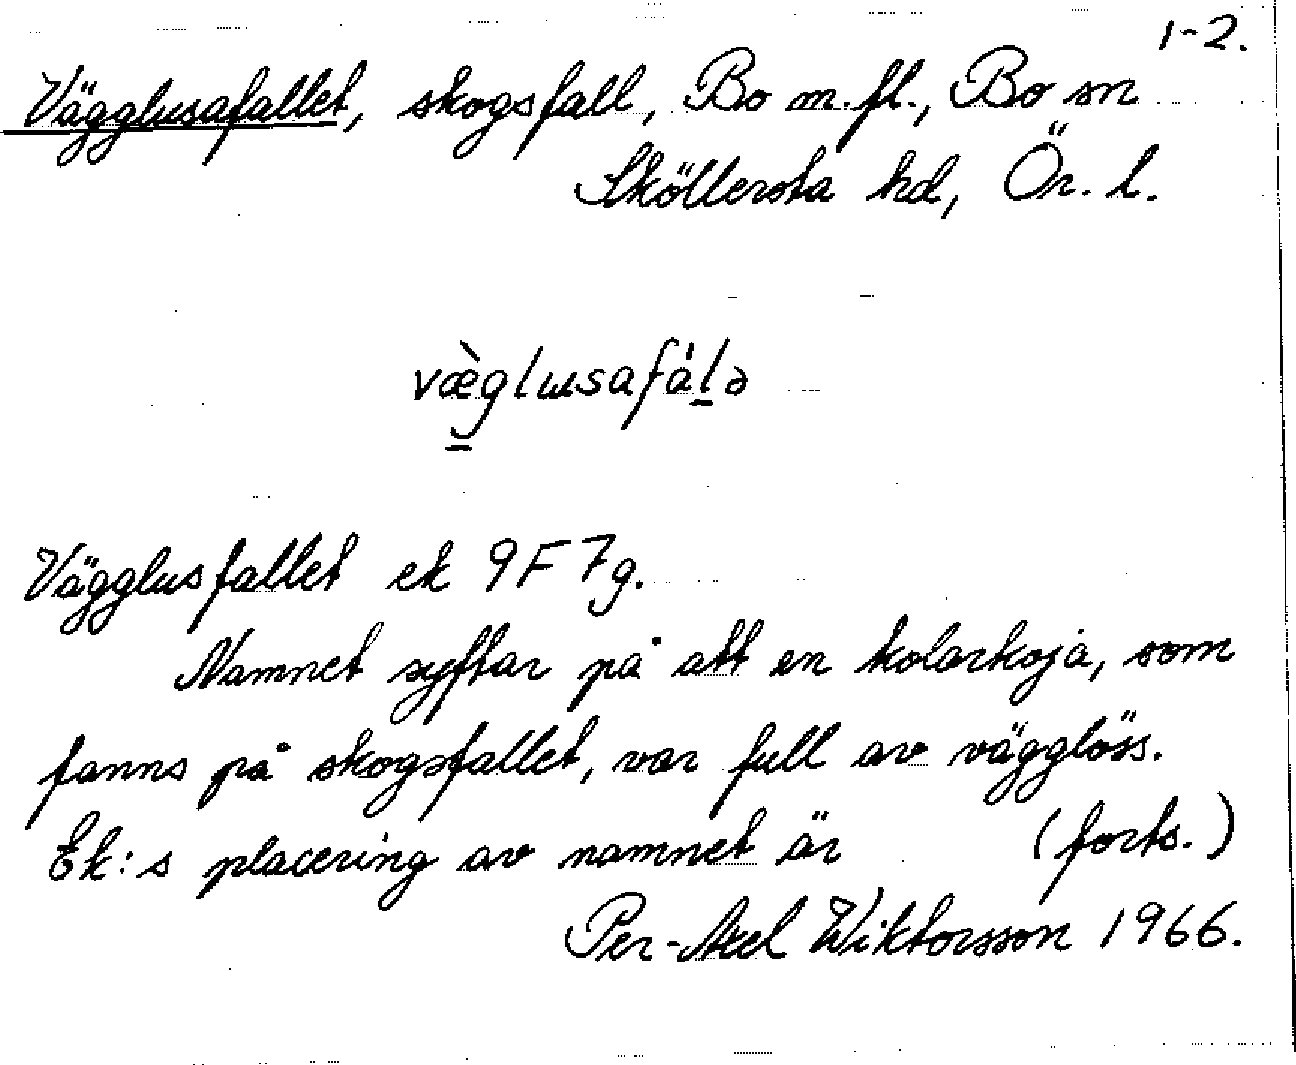 1-2.
Vägglusafallet, skogsfall, Bo m.fl., Bo sn
Sköllersta hd, Ör. l.
væ̀glusafálə
Vägglusfallet ek 9F7g.
Namnet syftar på att en kolarkoja, som
fanns på skogsfallet, var full av vägglöss.
Ek:s placering av namnet är (forts.)
Per-Axel Wiktorsson 1966.